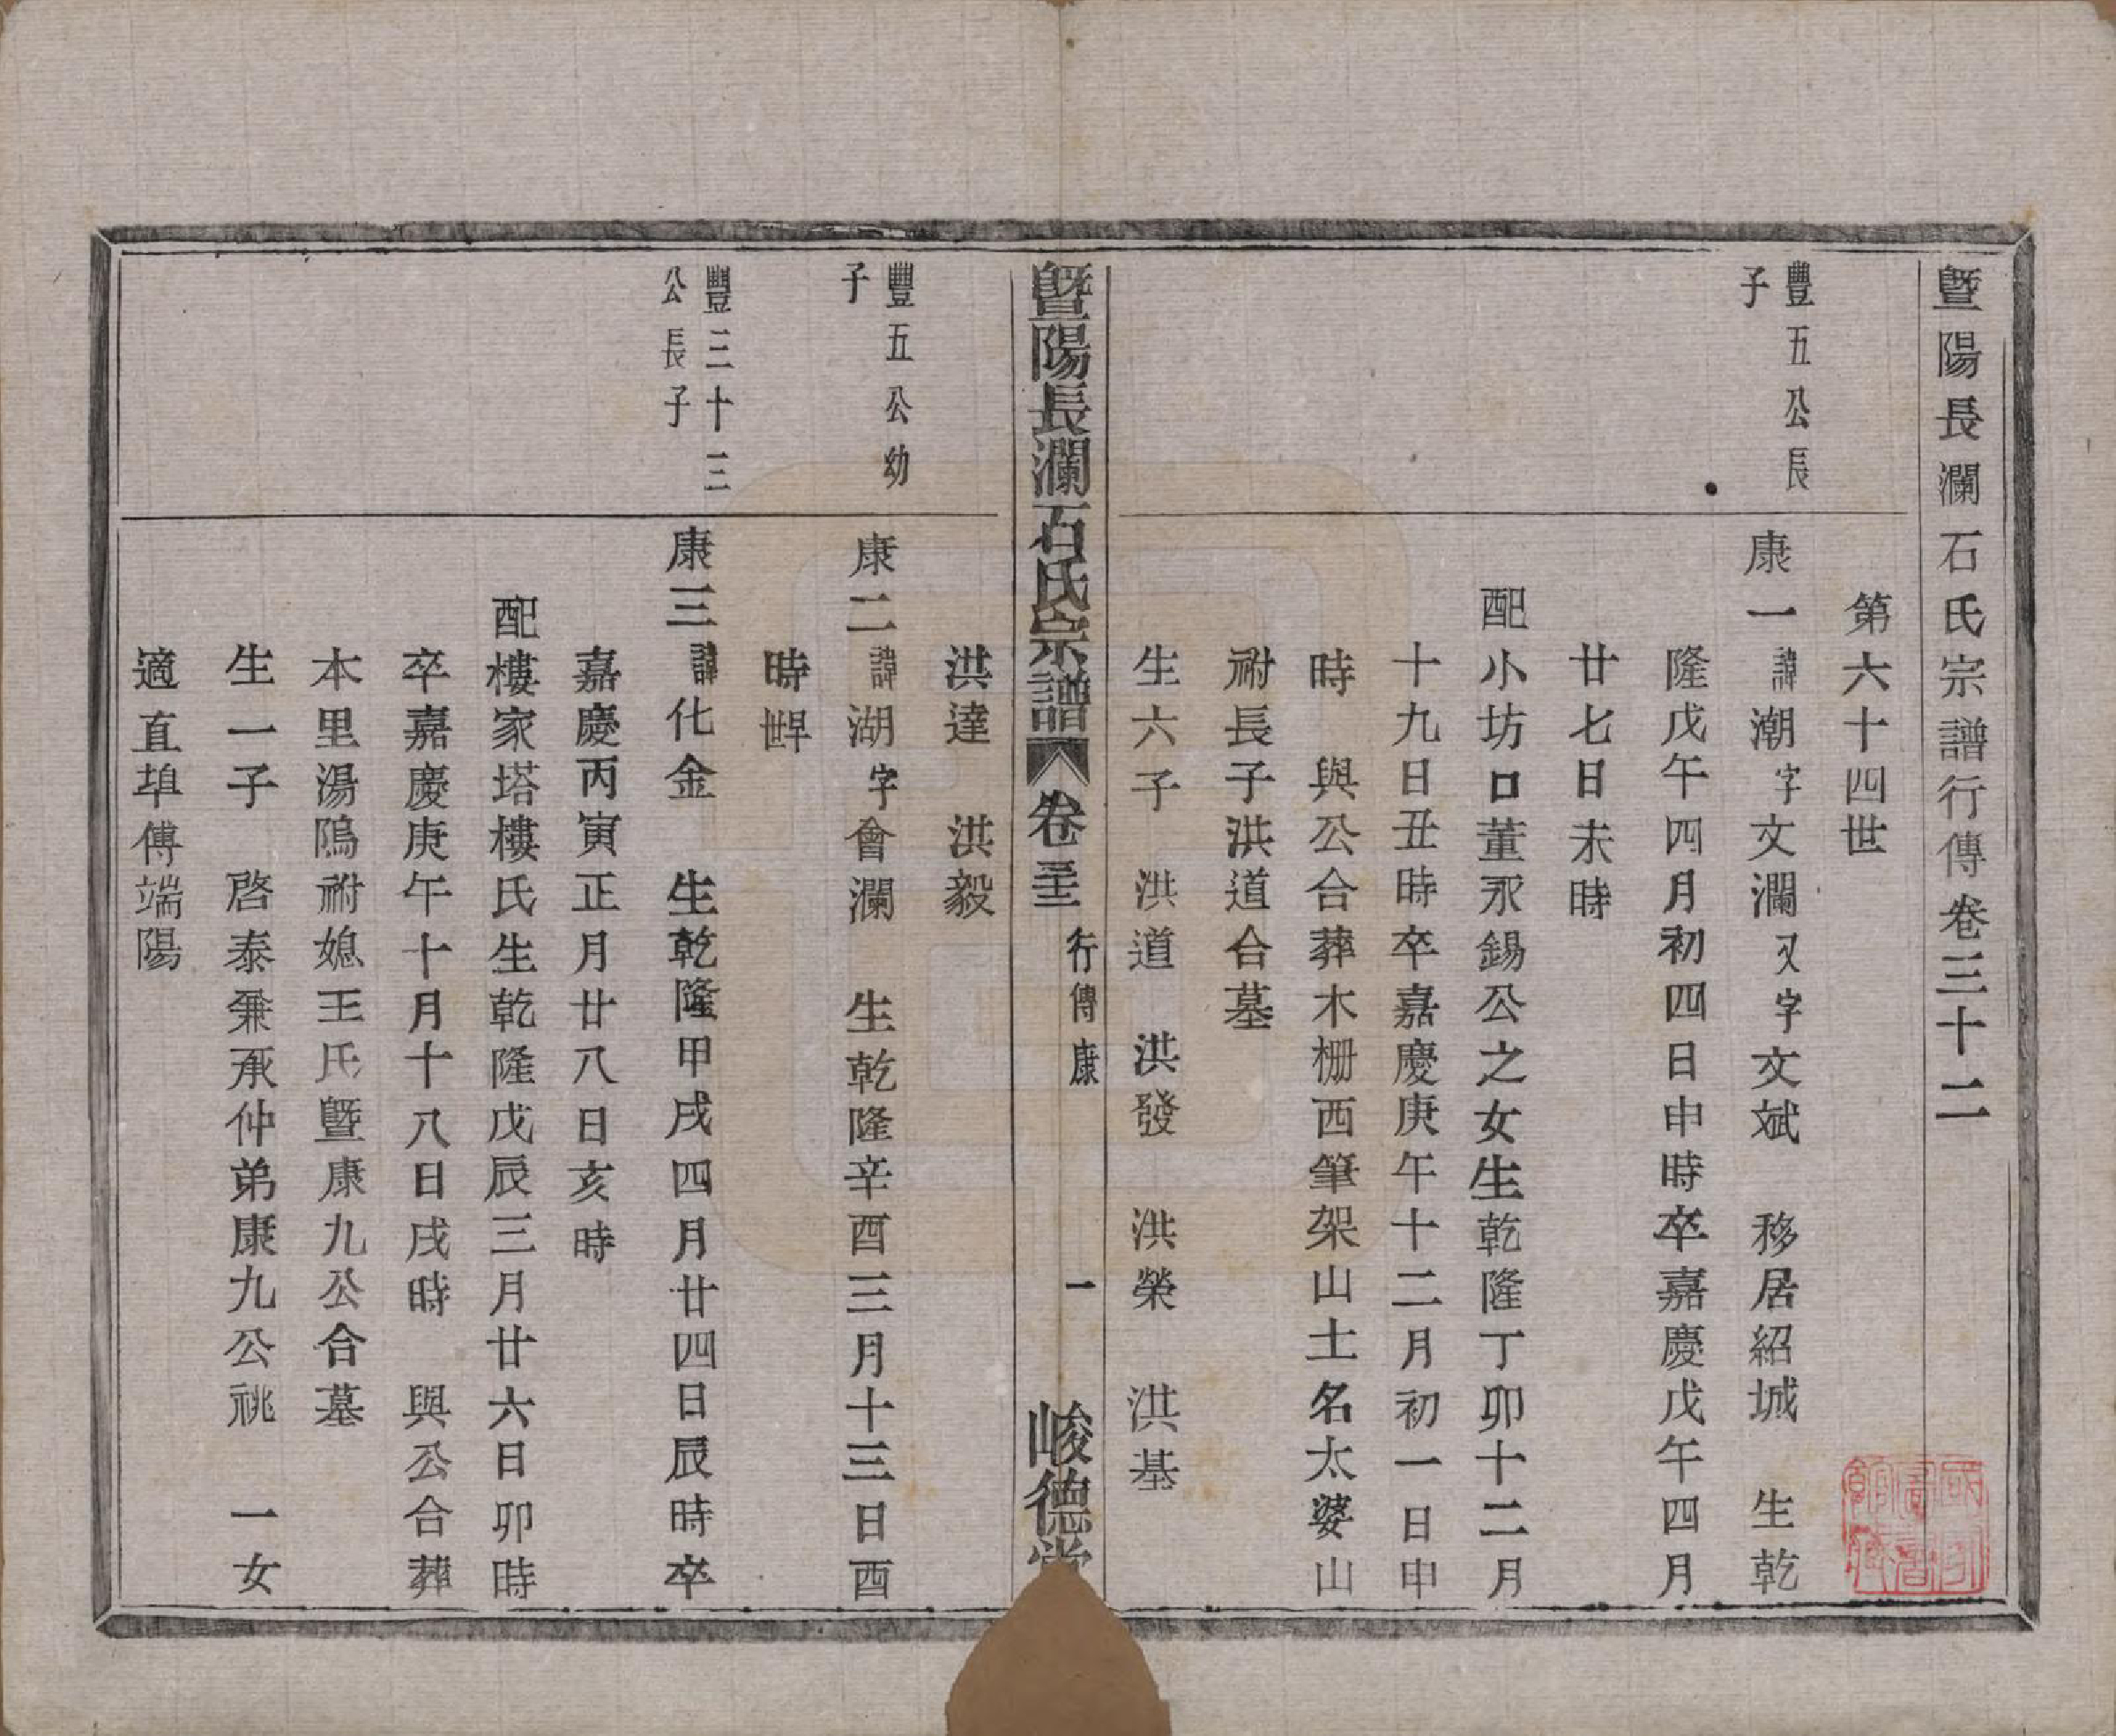 暨陽長瀾石氏宗譜行傳卷三十二
第六十四世
豐五公長
子
康一諱潮字文瀾又字文斌 移居紹城 生乾
隆戊午四月初四日申時卒嘉慶戊午四月
廿七日未時
配小坊口董永錫公之女生乾隆丁卯十二月
十九日丑時卒嘉慶庚午十二月初一日申
時 與公合葬木栅西筆架山土名太婆山
祔長子洪道合墓
生六子 洪道 洪發 洪榮 洪基
暨陽長瀾石氏宗譜 卷三十二 行傳康 一 峻德堂
洪達 洪毅
豐五公幼
子
康二諱湖字會瀾 生乾隆辛酉三月十三日酉
時
豐三十三
公長子
康三諱化金 生乾隆甲戌四月廿四日辰時卒
嘉慶丙寅正月廿八日亥時
配樓家塔樓氏生乾隆戊辰三月廿六日卯時
卒嘉慶庚午十月十八日戌時 與公合葬
本里湯隖祔媳王氏暨康九公合墓
生一子 啓泰兼承仲弟康九公祧 一女
適直埠傅端陽